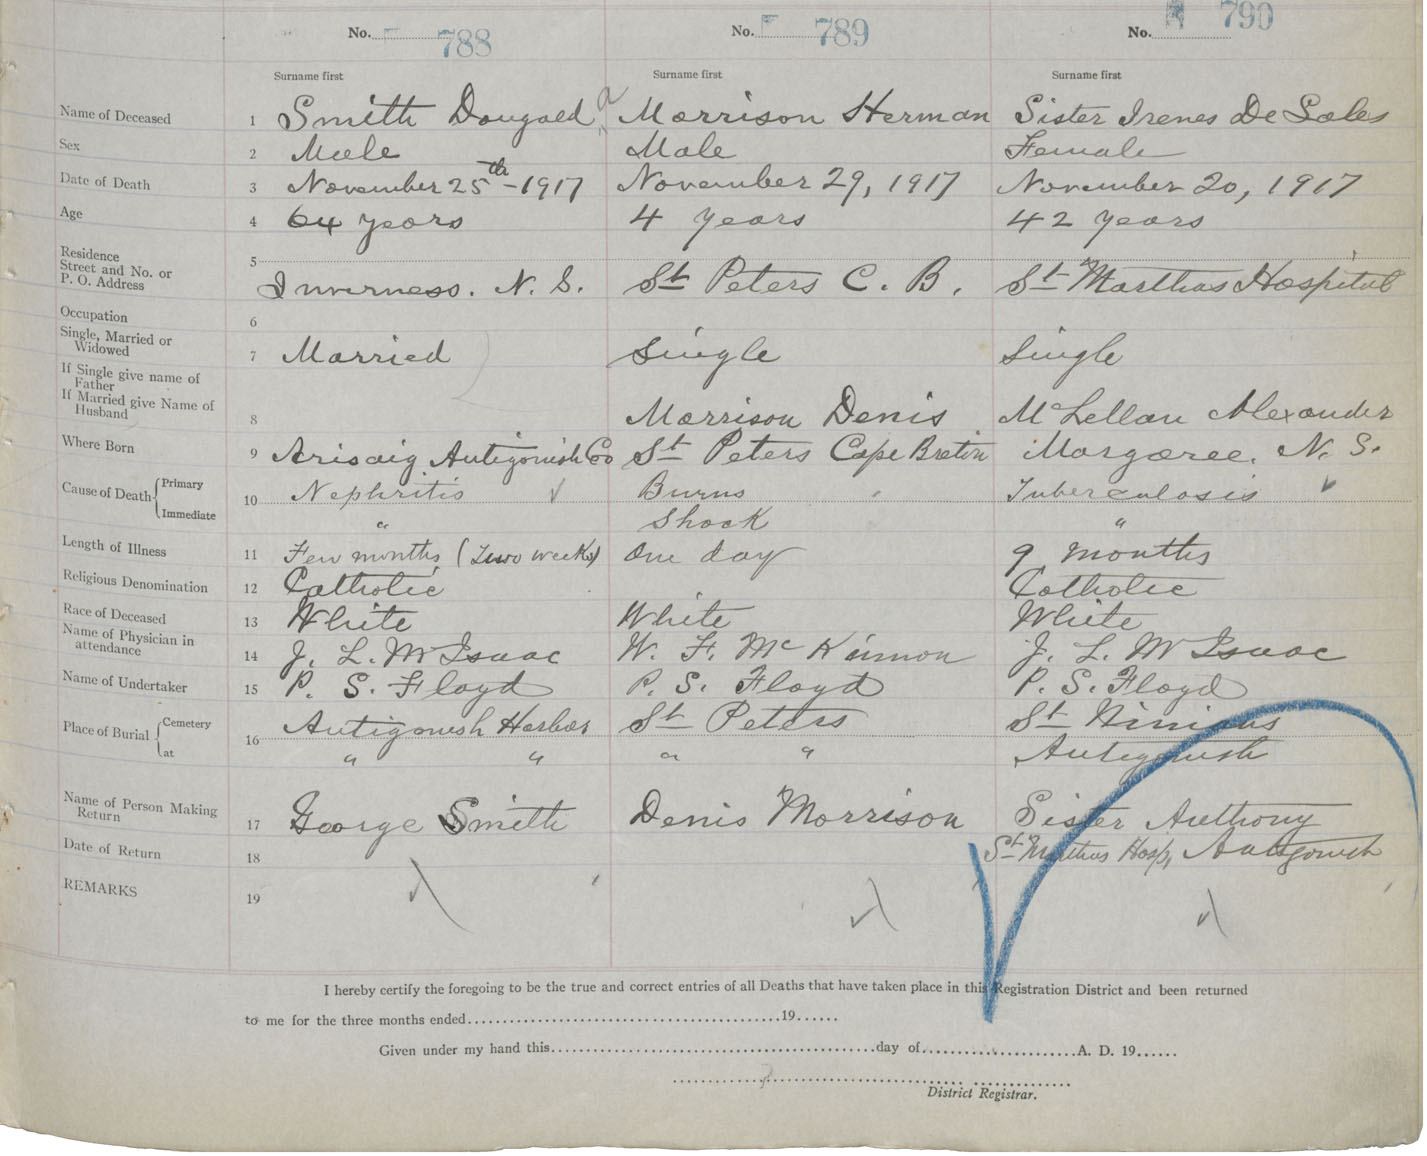 No. 788 No. 789 No. 790
Surname first Surname first Surname first
Name of Deceased 1 Smith Dougald Morrison Herman Sister Irenes De Sales
Sex 2 Male Male Female
Date of Death 3 November 25th - 1917 November 29, 1917 November 20, 1917
Age 4 64 years 4 years 42 years
Residence
Street and No. or
P. O. Address 5 Inverness. N. S. St Peters C. B. St Marthas Hospital
Occupation 6
Single, Married or
Widowed 7 Married Single Single
If Single give name of
Father
If Married give Name of
Husband 8 Morrison Denis McLellan Alexander
Where Born 9 Arisaig Antigonish Co St Peters Cape Breton Margaree. N. S.
Cause of Death Primary 10 Nephritis Burns Tuberculosis
Immediate " Shock "
Length of Illness 11 Few months (Two weeks) One day 9 months
Religious Denomination 12 Catholic Catholic
Race of Deceased 13 White White White
Name of Physician in
attendance 14 J. L. McIsaac W. F. McKinnon J. L. McIsaac
Name of Undertaker 15 P. S. Floyd P. S. Floyd P. S. Floyd
Place of Burial Cemetery 16 Antigonish Harbor St Peters St Ninians
at " " " " Antigonish
Name of Person Making
Return 17 George Smith Denis Morrison Sister Anthony
Date of Return 18 St Marthas Hosp, Antigonish
REMARKS 19
I hereby certify the foregoing to be the true and correct entries of all Deaths that have taken place in this Registration District and been returned
to me for the three months ended..........19......
Given under my hand this..........day of..........A. D. 19......
District Registrar.